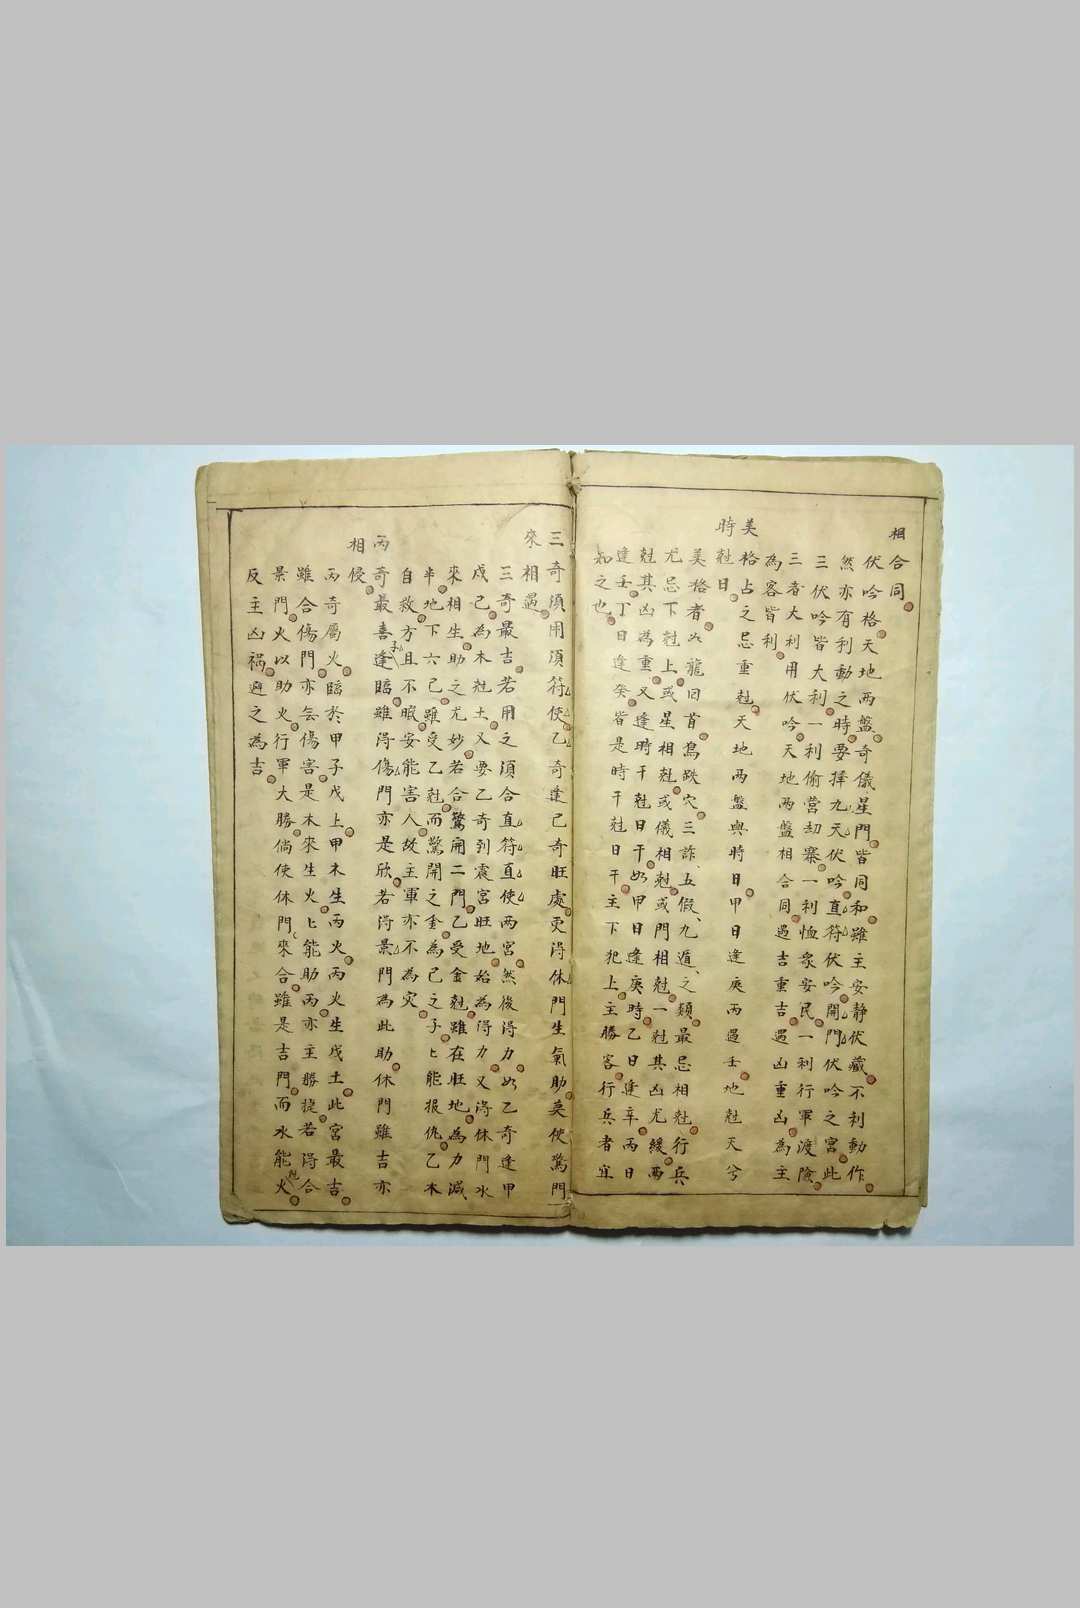 相合同
伏吟格天地兩盤奇儀星門皆同和雖主安静伏藏不利動作
然亦有利動之時要擇九天伏吟直符伏吟開門伏吟之宮此
三伏吟皆大利一利偷營劫寨一利恤衆安民一利行軍渡險
三者大利用伏吟天地兩盤相合同遇吉重吉遇凶重凶為主
為客皆利
美格占之忌重尅天地兩盤與時日甲日逢庚丙遇壬地尅天兮
時尅日
美格者如龍回首鳥跌穴三詐五假九遁之類最忌相尅行兵
尤忌下尅上或星相尅或儀相尅或門相尅一尅其凶尤緩兩
尅其凶為重又逢時干尅日干如甲日逢庚時乙日逢辛丙日
逢壬丁日逢癸皆是時干尅日干主下犯上主勝客行兵者宜
知之也
三奇須用須符使乙奇逢己奇旺處更得休門生氣助莫使驚門
來相遇
三奇最吉若用之須合直符直使兩宮然後得力如乙奇逢甲
戍己為木尅土又要乙奇到震宮旺地始為得力又得休門水
來相生助之尤妙若合驚開二門乙受金尅雖在旺地為力減
半地下六己雖受乙尅而驚開之金為己之子匕能报仇乙木
自救方且不暇安能害人故主軍亦不為灾
丙奇最喜逢子臨雖得傷門亦是欣若得景門為此助休門雖吉亦
相侵
丙奇屬火臨於甲子戊上甲木生丙火丙火生戊土此宮最吉
雖合傷門亦無傷害是木來生火匕能助丙亦主勝捷若得合
景門火以助火行軍大勝倘使休門來合雖是吉門而水能尅火
反主凶禍避之為吉